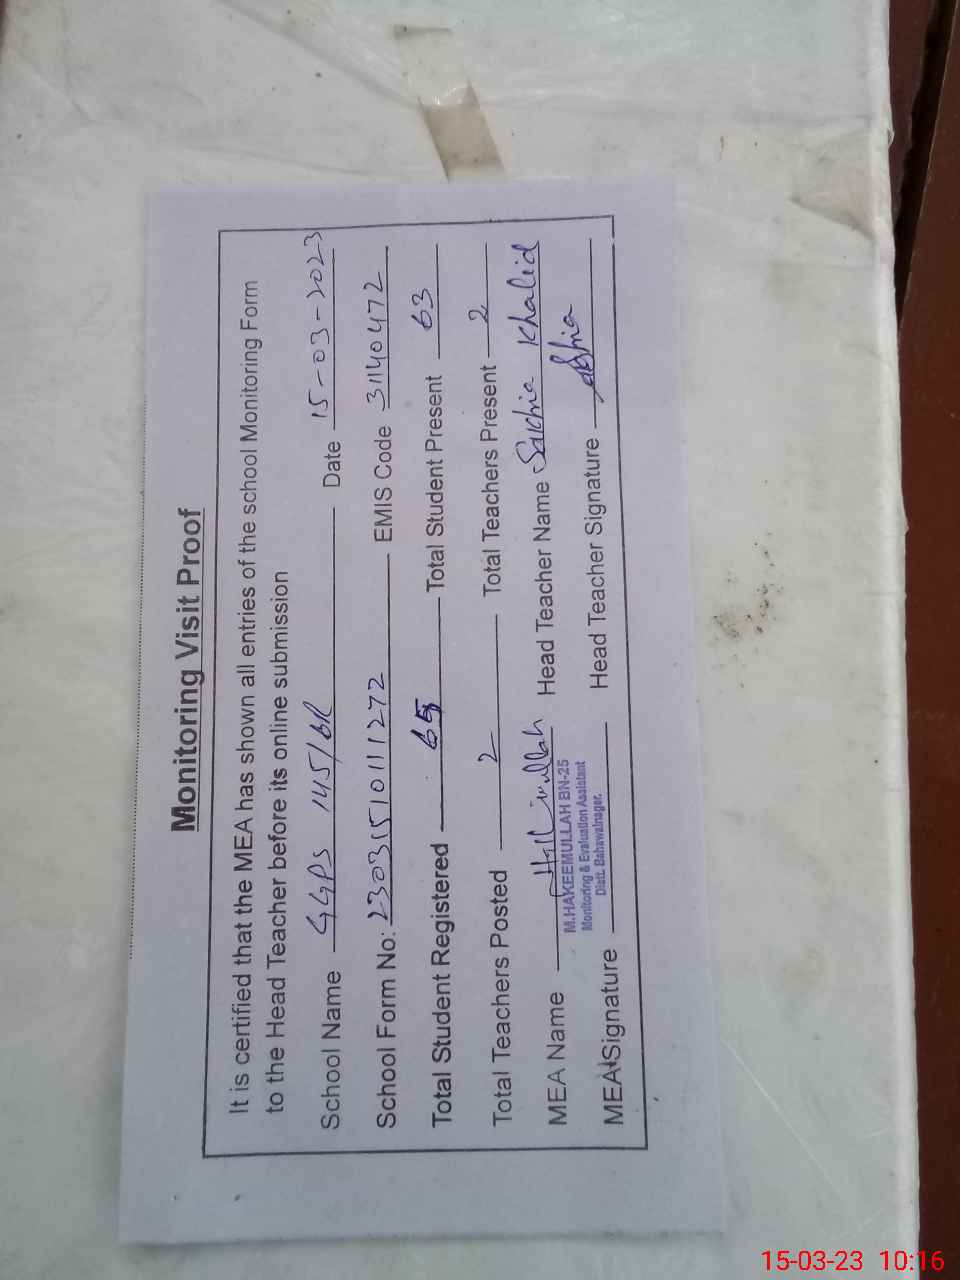 Monitoring Visit Proof
It is certified that the MEA has shown all entries of the school Monitoring Form
to the Head Teacher before its online submission
School Name GGPS 145/6R Date 15-03-2023
School Form No: 23031510111272 EMIS Code 31140472
Total Student Registered 65 Total Student Present 63
Total Teachers Posted 2 Total Teachers Present 2
MEA Name Head Teacher Name Khalid
M.HAKEEMULLAH BN-25
Monitoring & Evaluation Assistant
Distt. Bahawalnagar.
MEA Signature Head Teacher Signature
15-03-23 10:16